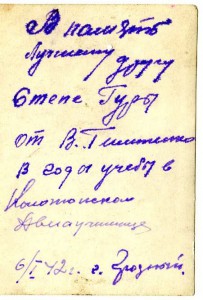 В память
Лучшему другу
Степе Гуры
от В. Тимшенко
В годы учебы в
Конотопском
Авиаучилище
6/I 42г. г. Грозный.